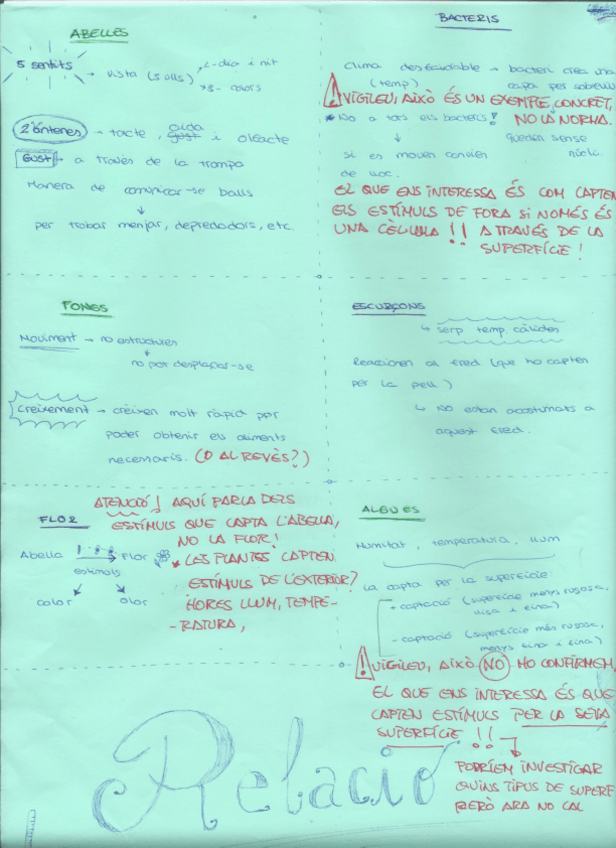 ABELLES
5 sentits → vista (5 ulls)
2 - dia i nit
3 - colors
2 antenes → tacte, oïda i olfacte
Gust → a través de la trompa
Manera de comunicar-se balls
↓
per trobar menjar, depredadors, etc.
BACTERIS
Clima desfavorable → bacteri crea una
(temp) capa per sobreviu
VIGILEU, AIXÒ ÉS UN EXEMPLE CONCRET,
NO LA NORMA.
No a tots els bacteris!
queden sense
nucli.
↓
si es mouen canvien
de lloc.
EL QUE ENS INTERESSA ÉS COM CAPTEN
ELS ESTÍMULS DE FORA SI NOMÉS ÉS
UNA CÈL·LULA!! A TRAVÉS DE LA
SUPERFÍCIE!
FONGS
Moviment → no estructures
↓
no por desplaçar-se
Creixement → creixen molt ràpid per
poder obtenir els aliments
necessaris. (O AL REVÉS?)
ESCURÇONS
↳ serp temp. càlides
Reaccionen al fred (que ho capten
per la pell)
↳ No estan acostumats a
aquest fred.
FLOR
ATENCIÓ! AQUÍ PARLA DELS
ESTÍMULS QUE CAPTA L'ABELLA,
NO LA FLOR!
Abella → Flor
estímuls
color olor
* LES PLANTES CAPTEN
ESTÍMULS DE L'EXTERIOR?
HORES LLUM, TEMPE-
-RATURA,
ALGUES
Humitat, temperatura, llum
La capta per la superfície:
- captació (superfície menys rugosa,
llisa i fina)
- captació (superfície més rugosa,
menys fina i fina)
VIGILEU, AIXÒ NO HO CONFIRMEM,
EL QUE ENS INTERESSA ÉS QUE
CAPTEN ESTÍMULS PER LA SEVA
SUPERFÍCIE!!
PODRÍEM INVESTIGAR
QUINS TIPUS DE SUPERF
PERÒ ARA NO CAL
Relació